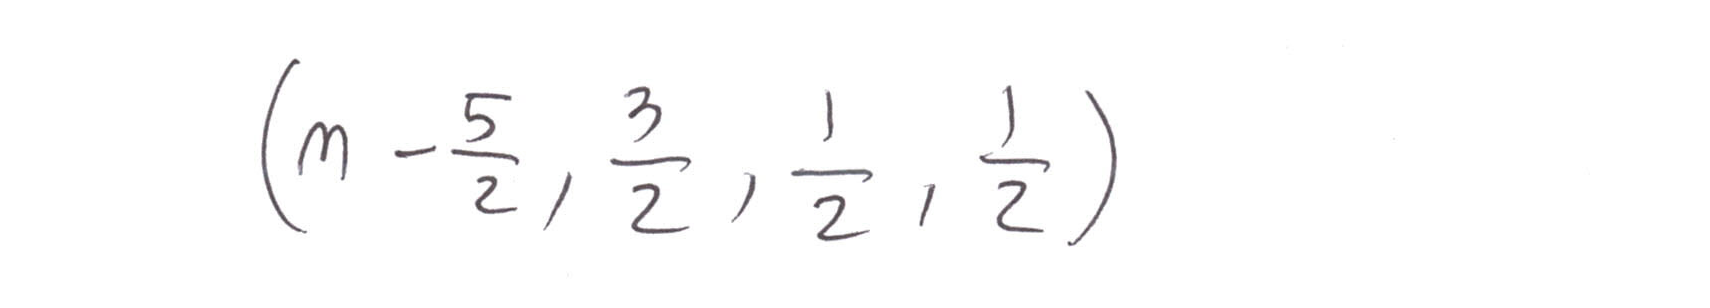 (n - 5/2, 3/2, 1/2, 1/2)